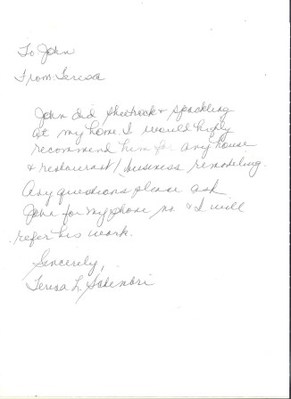 To John
From: Teresa
John did Sheetrock & spackling
at my home. I would highly
recommend him for any house
& restaurant / business remodeling.
Any questions please ask
John for my phone no. & I will
refer his work.
Sincerely,
Teresa L.